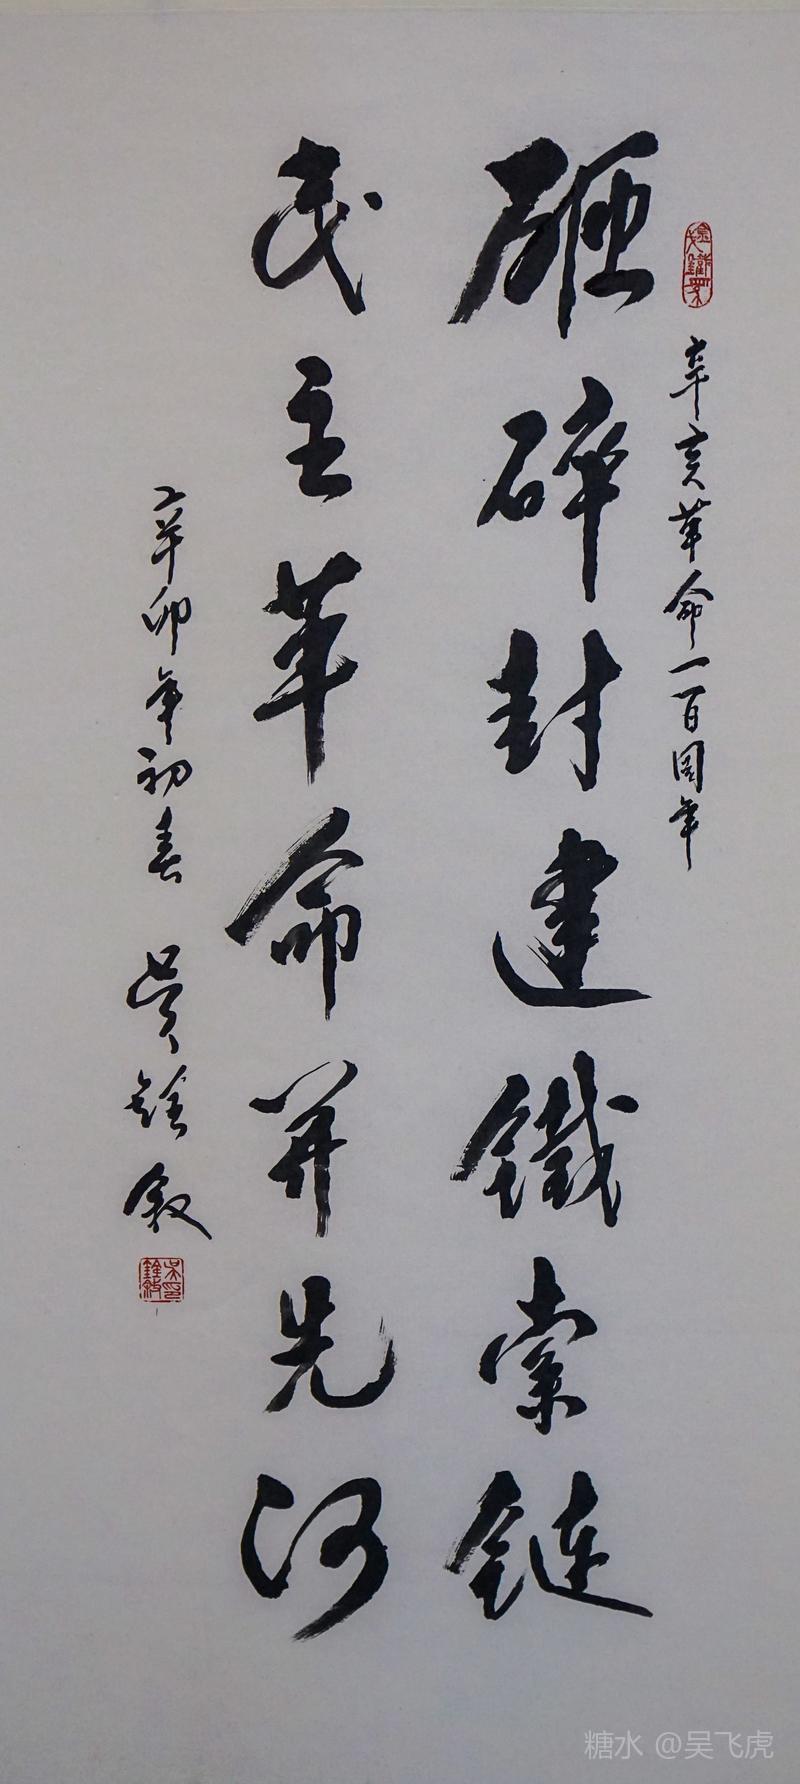 辛亥革命一百周年
砸碎封建鐵索链
民主革命开先河
辛卯年初春 吴铨叙
糖水 @吴飞虎